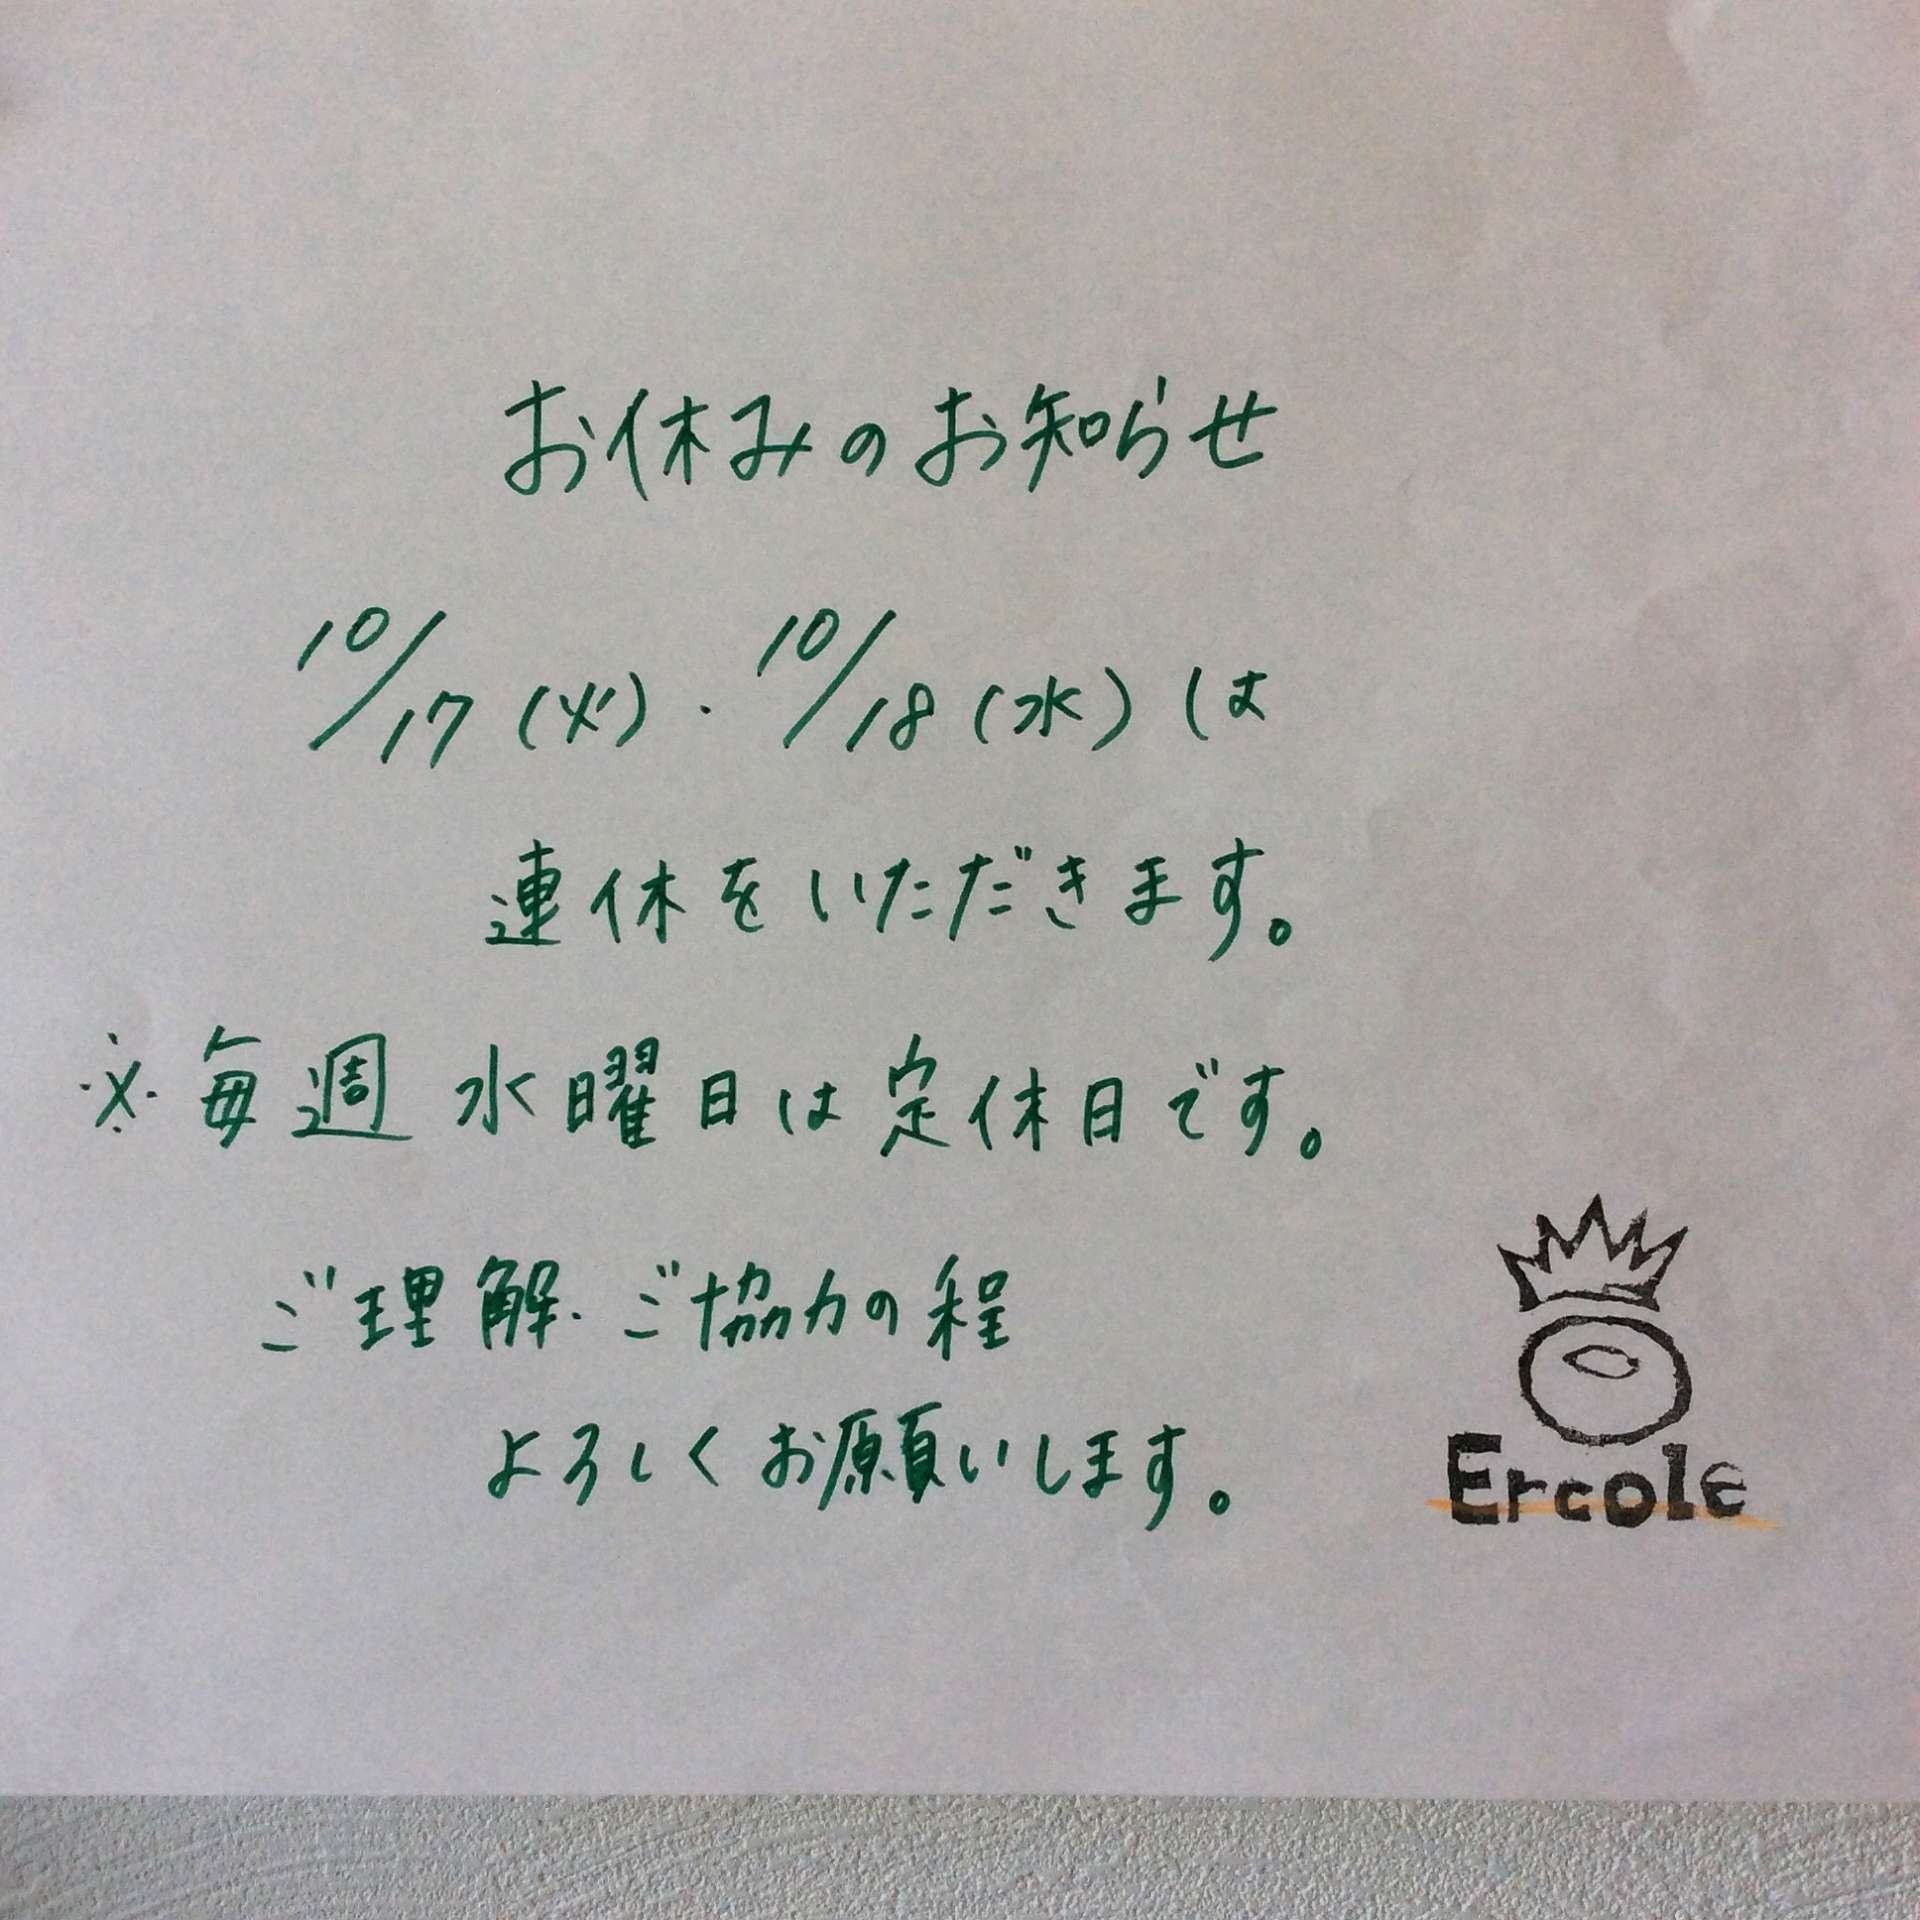 お休みのお知らせ
10/17(火)・10/18(水)は
連休をいただきます。
※毎週水曜日は定休日です。
ご理解・ご協力の程
よろしくお願いします。
Ercole